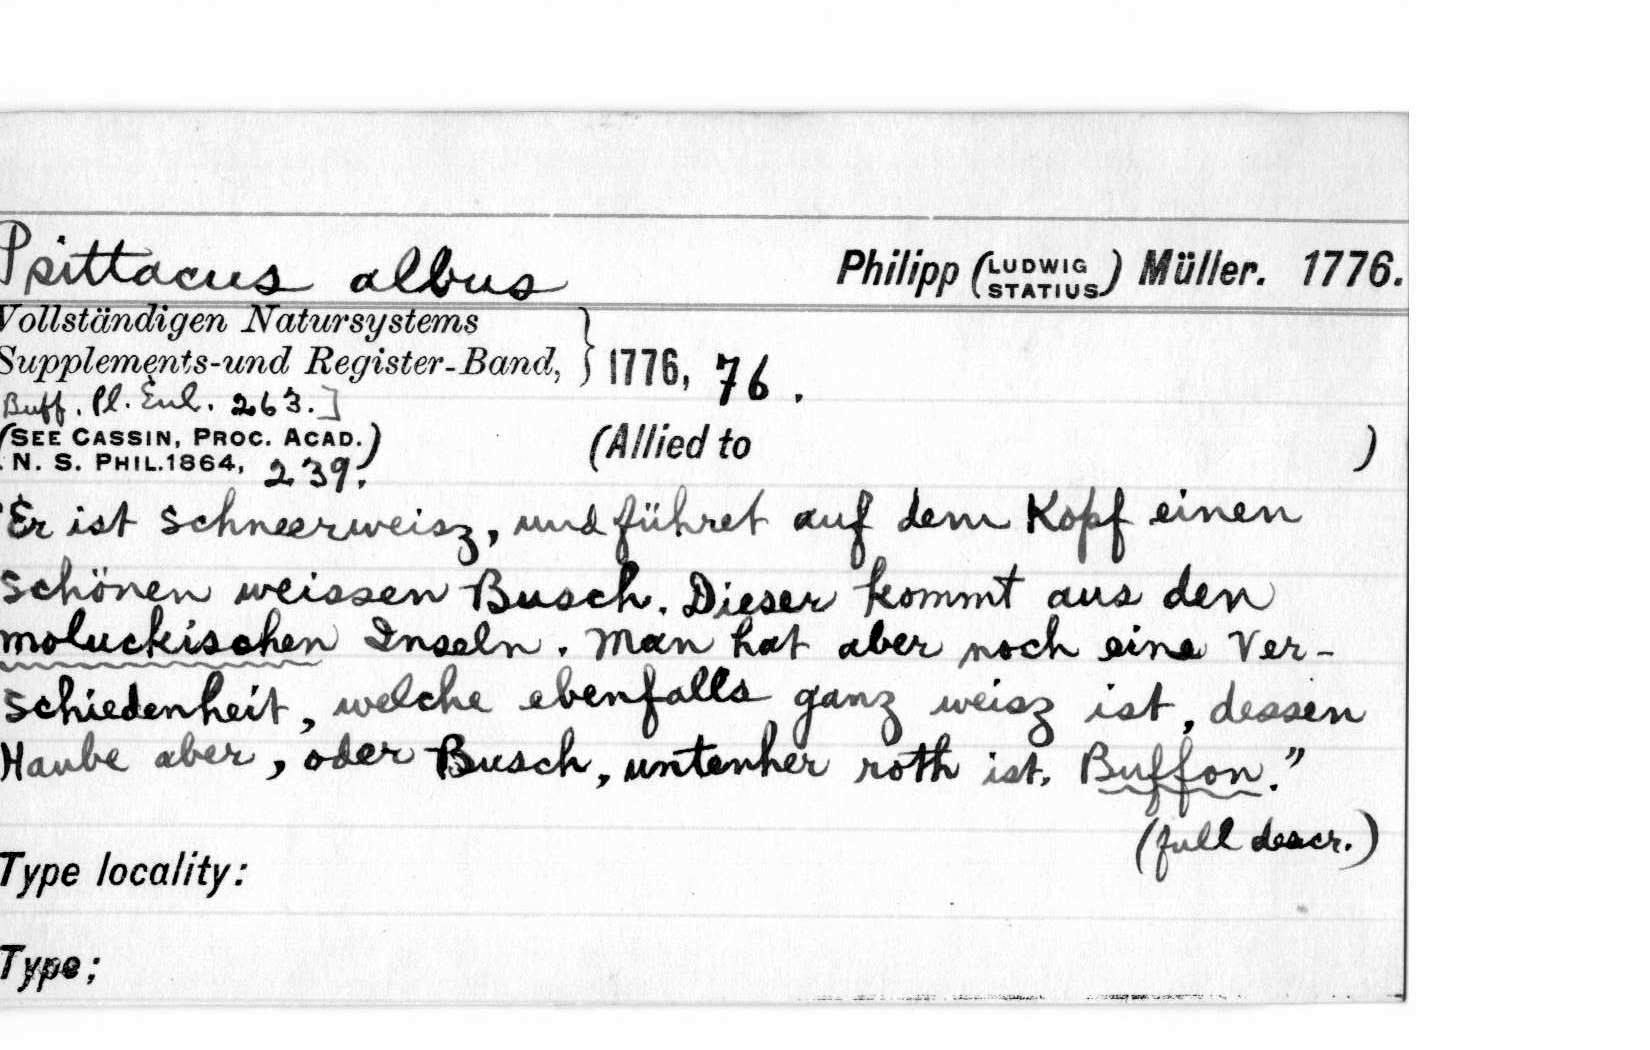 Psittacus albus Philipp (LUDWIG STATIUS) Müller. 1776.
Vollständigen Natursystems
Supplements-und Register-Band, } 1776, 76.
Buff. Pl. Enl. 263.]
(SEE CASSIN, PROC. ACAD.
N. S. PHIL. 1864, 239.)
(Allied to )
"Er ist schneerweisz, und führet auf dem Kopf einen
schönen weissen Busch. Dieser kommt aus den
moluckischen Inseln. Man hat aber noch eine Ver-
schiedenheit, welche ebenfalls ganz weisz ist, dessen
Haube aber, oder Busch, untenher roth ist. Buffon."
(full descr.)
Type locality:
Type;